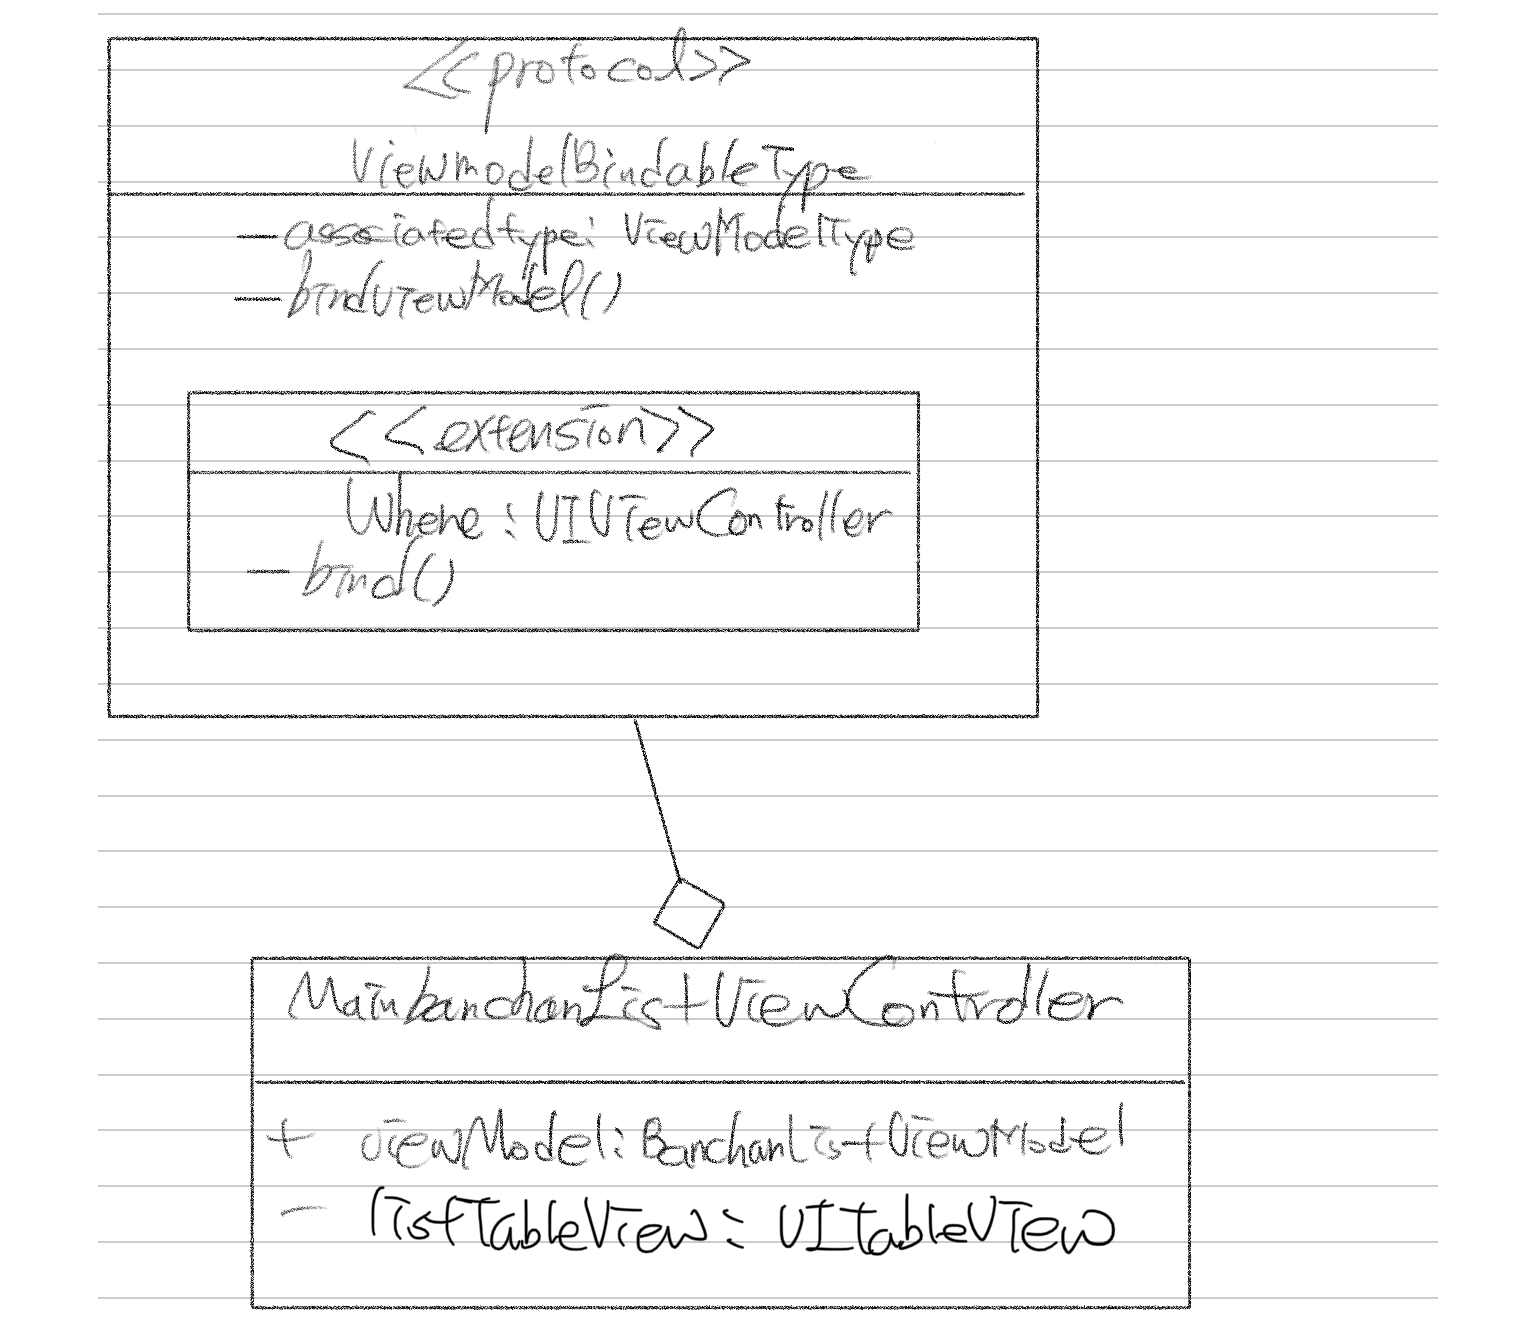 <<protocol>>
ViewmodelBindableType
- associatedtype: ViewModelType
- bindViewModel()
<<extension>>
Where : UIViewController
- bind()
MainbanchanListViewController
+ viewModel: BanchanListViewModel
- listTableView : UITableView